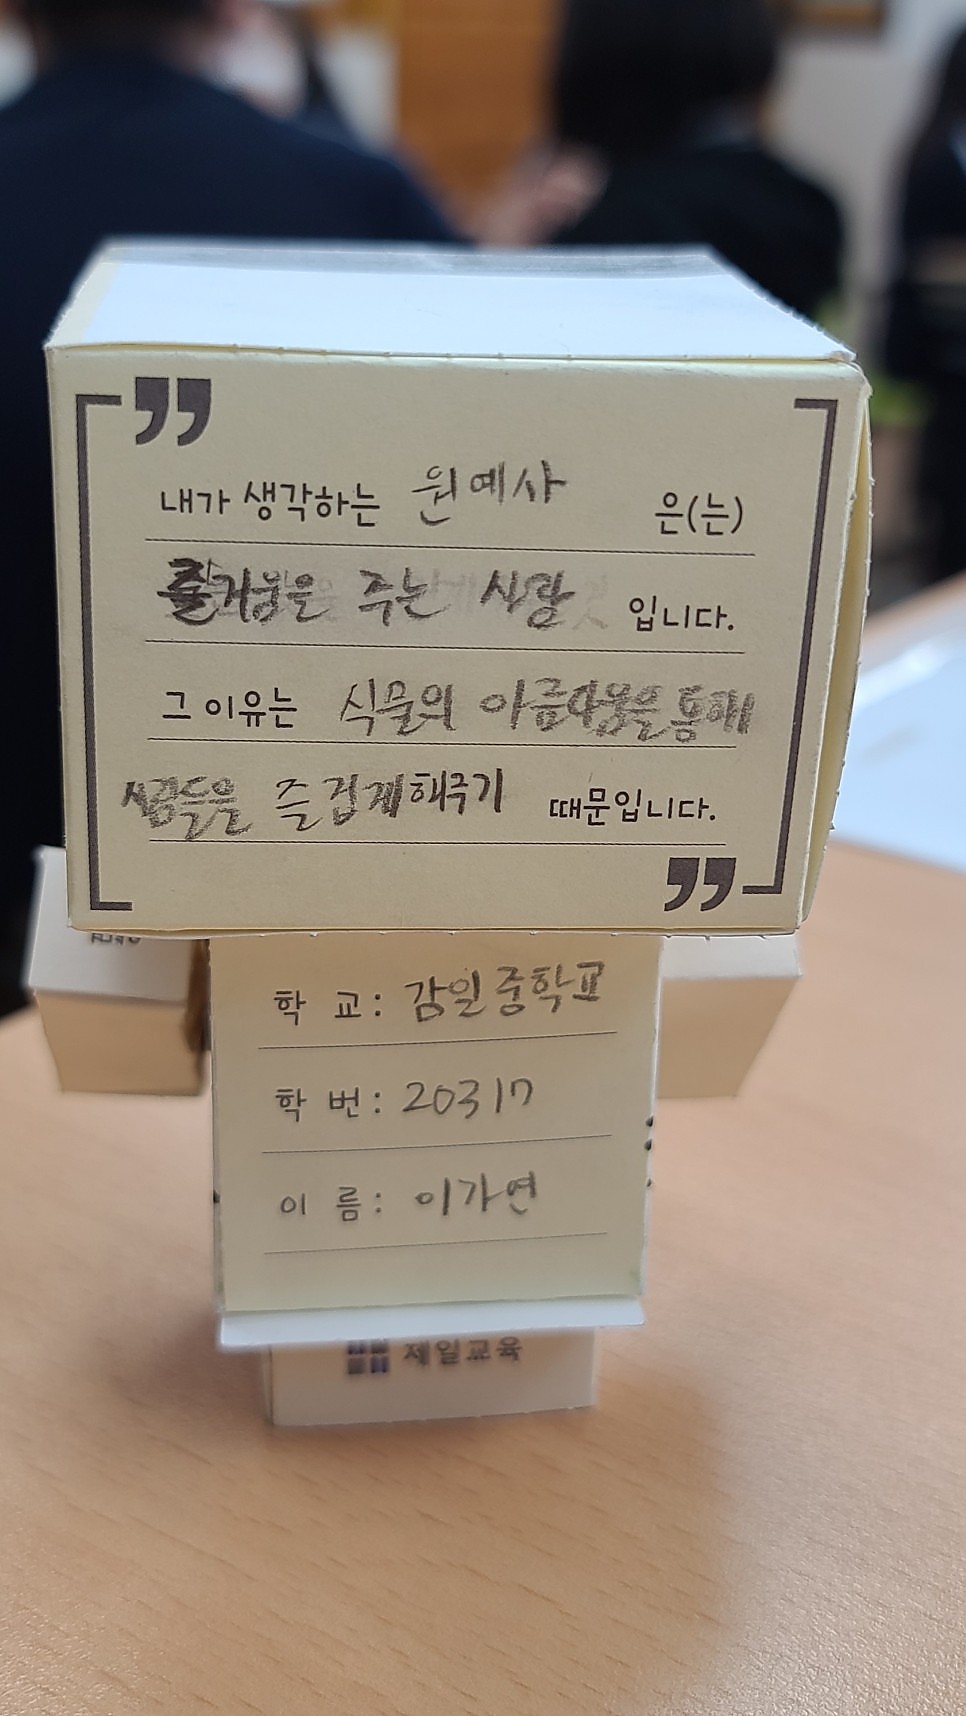 내가 생각하는 원예사 은(는)
즐거움은 주는 사람 입니다.
그 이유는 식물의 아름다움을 통해
사람들을 즐겁게해주기 때문입니다.
학 교: 감일중학교
학 번: 20317
이 름: 이가연
제일교육